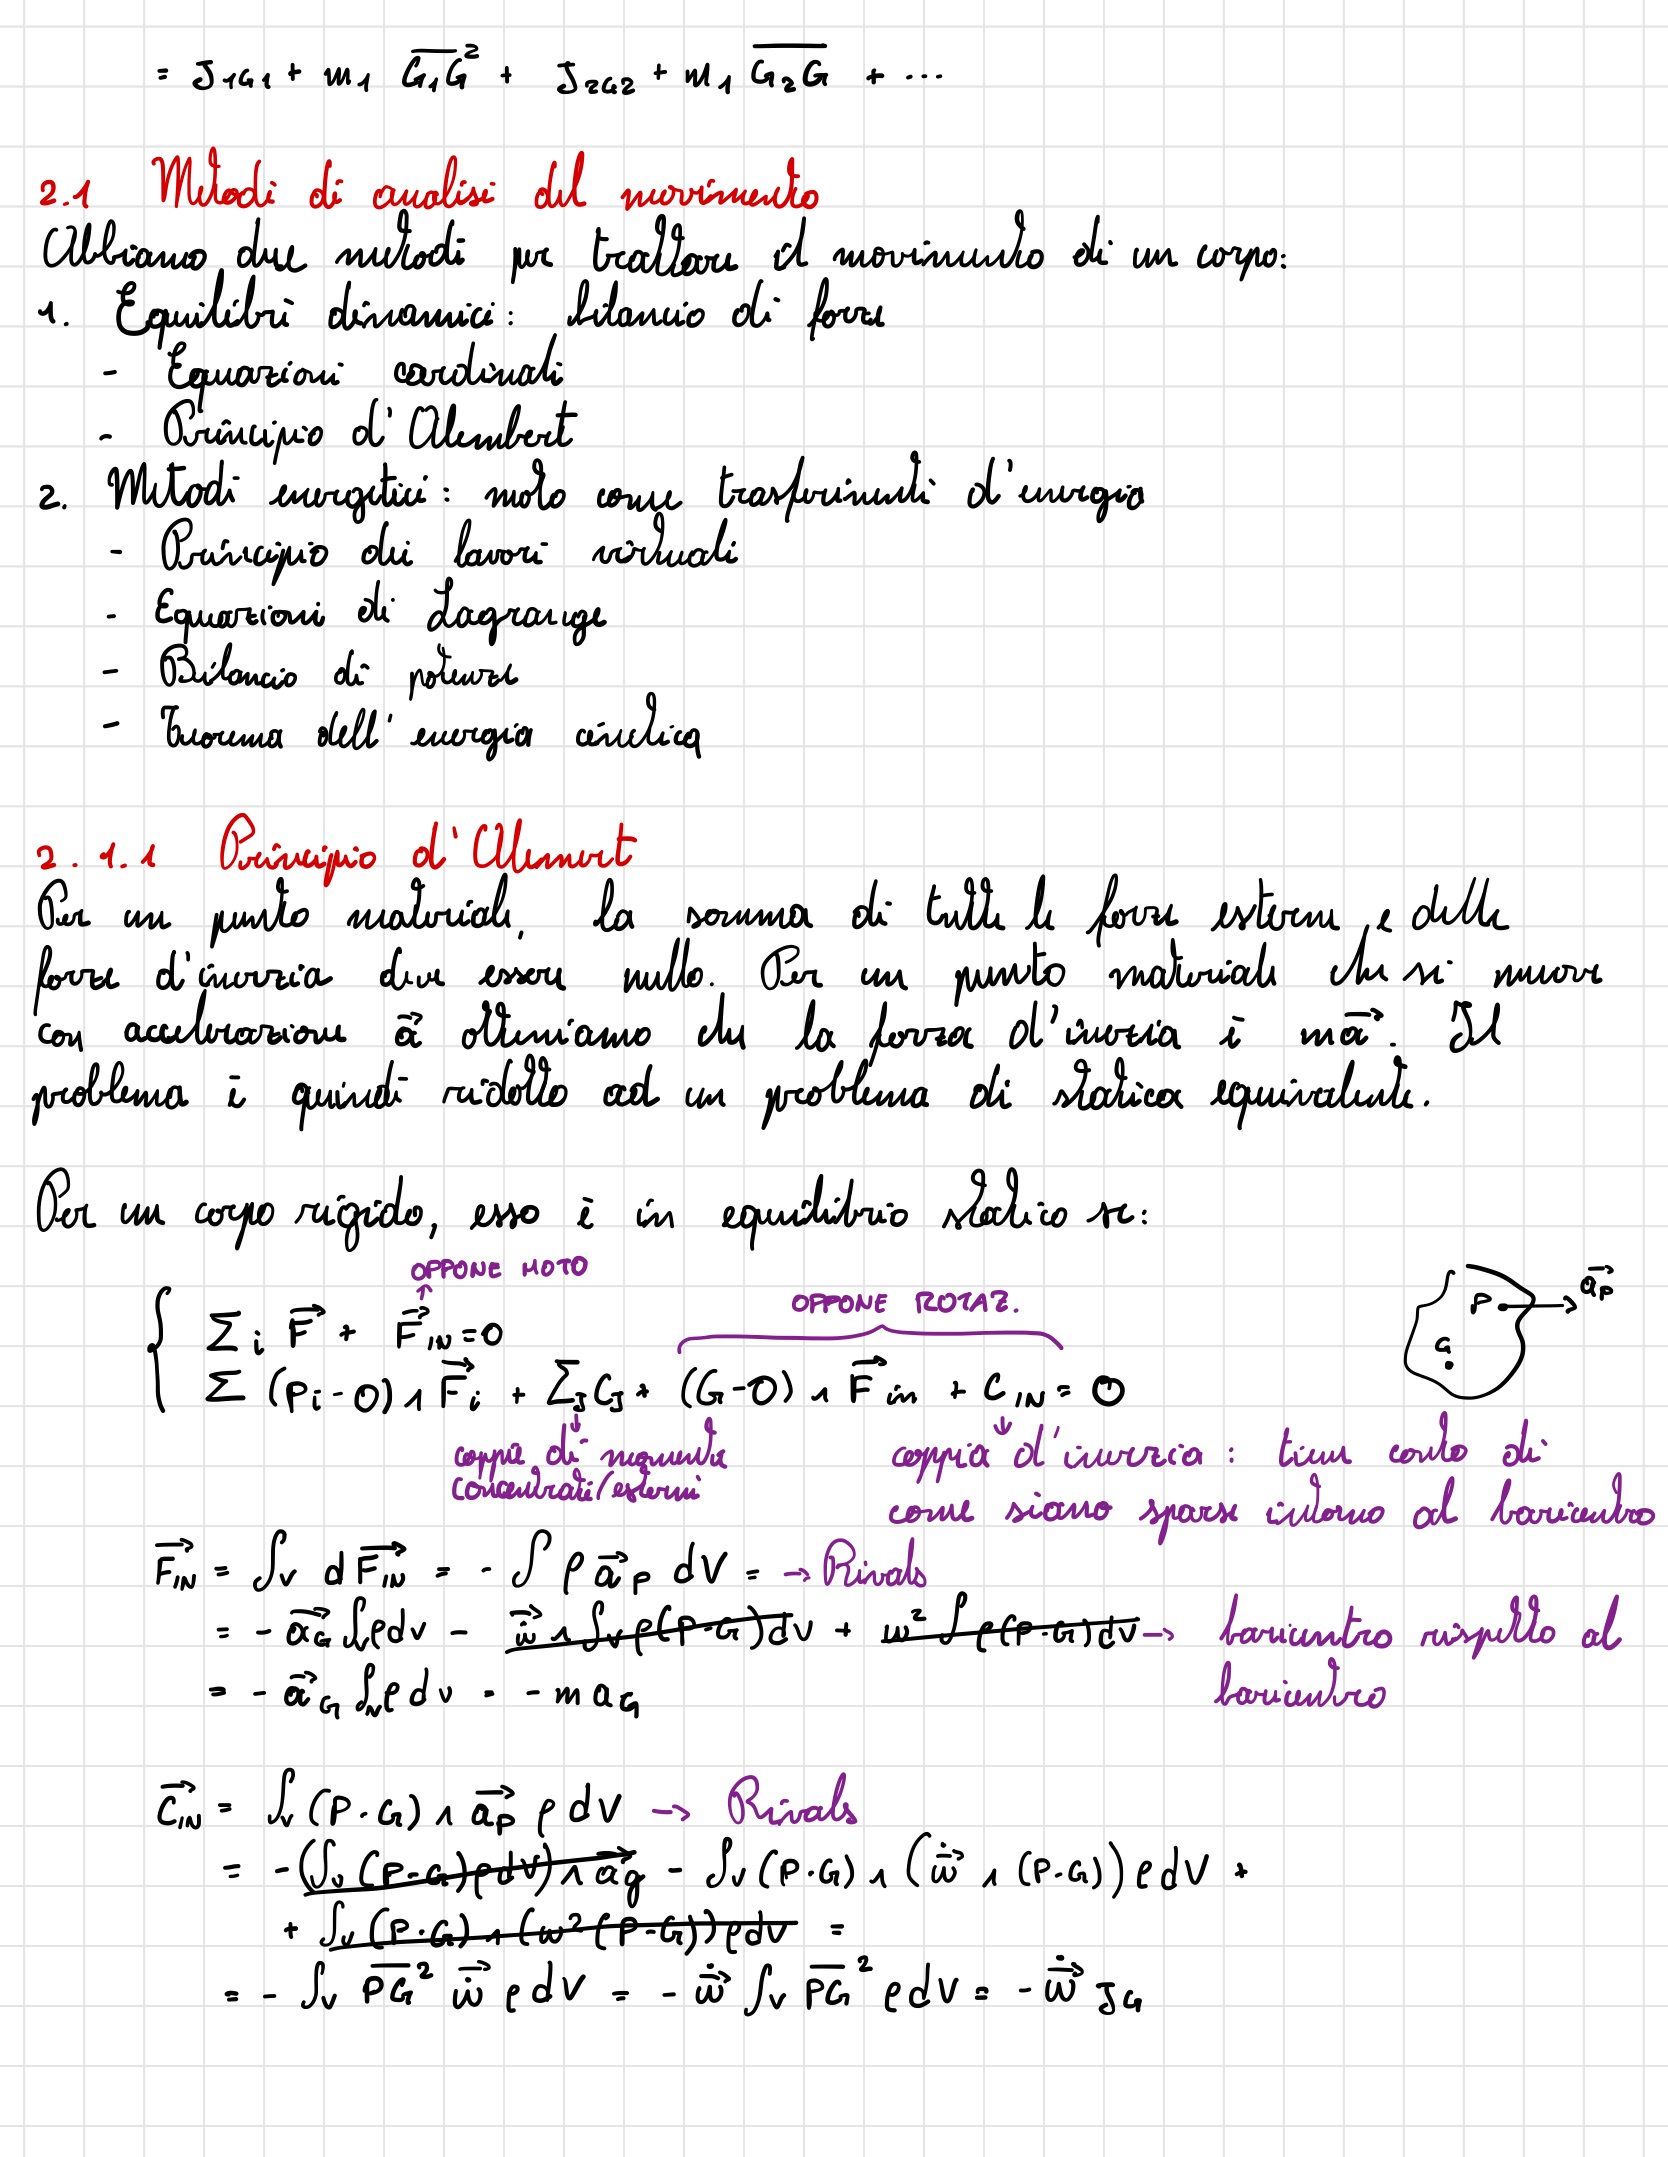 = J₁G₁ + m₁ \overline{G₁G}² + J₂G₂ + m₁ \overline{G₂G} + ...
2.1 Metodi di analisi del movimento
Abbiamo due metodi per trattare il movimento di un corpo:
1. Equilibri dinamici: bilancio di forze
- Equazioni cardinali
- Principio d'Alembert
2. Metodi energetici: moto come trasferimenti d'energia
- Principio dei lavori virtuali
- Equazioni di Lagrange
- Bilancio di potenze
- Teorema dell'energia cinetica
2.1.1 Principio d'Alemert
Per un punto materiale, la somma di tutte le forze esterne e delle
forze d'inerzia deve essere nullo. Per un punto materiale che si muove
con accelerazione \vec{a} otteniamo che la forza d'inerzia è m\vec{a}. Il
problema è quindi ridotto ad un problema di statica equivalente.
Per un corpo rigido, esso è in equilibrio statico se:
OPPONE MOTO
OPPONE ROTAZ.
Σ_i \vec{F} + \vec{F}_{IN} = 0
Σ (P_i - O) ∧ \vec{F}_i + Σ_J C_J + (G - O) ∧ \vec{F}_{in} + C_{IN} = 0
P \vec{a_P}
G
coppie di momente
concentrati/esterni
coppia d'inerzia: tiene conto di
come siano sparse intorno al baricentro
\vec{F_{IN}} = ∫_V d\vec{F_{IN}} = - ∫ ρ \vec{a}_P dV = → Rivals
= - \vec{a_G} ∫_V ρ dv - \vec{\dot{ω}} ∧ ∫_V ρ(P-G) dV + ω² ∫ ρ(P-G) dV → baricentro rispetto al
baricentro
= - \vec{a}_G ∫_V ρ dv = - m a_G
\vec{C_{IN}} = ∫_V (P-G) ∧ \vec{a_P} ρ dV → Rivals
= - (∫_V (P-G) ρ dV) ∧ \vec{a_g} - ∫_V (P-G) ∧ (\vec{\dot{ω}} ∧ (P-G)) ρ dV +
+ ∫_V (P-G) ∧ (ω² (P-G)) ρ dV =
= - ∫_V \overline{PG}² \vec{\dot{ω}} ρ dV = - \vec{\dot{ω}} ∫_V \overline{PG}² ρ dV = - \vec{\dot{ω}} J_G